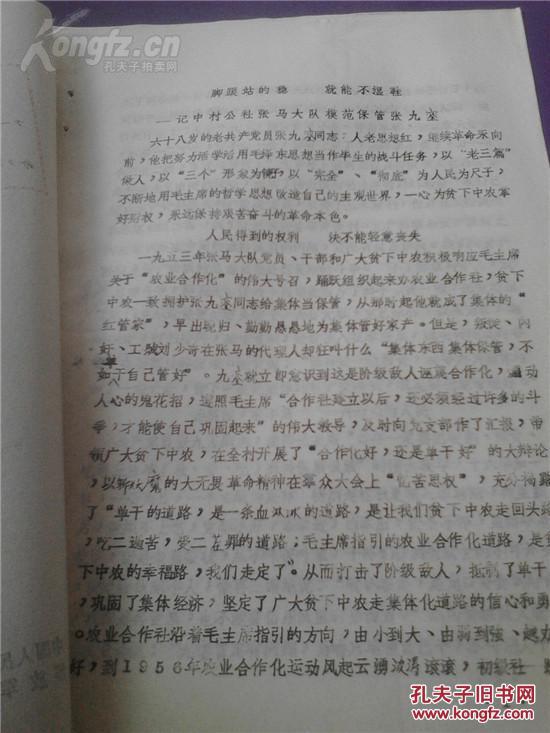 Kongfz.com
孔夫子旧书网
脚跟站的稳 就能不湿鞋
——记中村公社张马大队模范保管张九
六十八岁的老共产党员张九同志:人老思想红,继续革命永向
前,他把努力活学活用毛泽东思想当作毕生的战斗任务,以“老三篇”
做人,以“三个”形象为镜子,以“完全”、“彻底”为人民为尺子,
不断地用毛主席的哲学思想改造自己的主观世界,一心为贫下中农掌
好财权,永远保持艰苦奋斗的革命本色。
人民得到的权利 决不能轻意丧失
一九五三年张马大队党员、干部和广大贫下中农积极响应毛主席
关于“农业合作化”的伟大号召,踊跃组织起来办农业合作社,贫下
中农一致拥护张九同志给集体当保管,从那时起他就成了集体的“
红管家”,早出晚归、勤勤恳恳地为集体管好家产。但是,叛徒、内
奸、工贼刘少奇在张马的代理人却狂叫什么“集体东西集体保管,不
如于自己管好”。九就立即意识到这是阶级敌人诬蔑合作化,动
人心的鬼花招,遵照毛主席“合作社建立以后,还必须经过许多的斗
争,才能使自己巩固起来”的伟大教导,及时向党支部作了汇报,带
领广大贫下中农,在全村开展了“合作化好,还是单干好”的大辩论
,以的大无畏革命精神在群众大会上“忆苦思权”,充分揭露
了“单干的道路,是一条血淋淋的道路,是让我们贫下中农走回头路
,吃二遍苦,受二茬罪的道路;毛主席指引的农业合作化道路,是贫
下中农的幸福路,我们走定了”。从而打击了阶级敌人,抵制了单干
,巩固了集体经济,坚定了广大贫下中农走集体化道路的信心和勇
。农业合作社沿着毛主席指引的方向,由小到大、由弱到强、越办
好,到1956年农业合作化运动风起云湧波涛滚滚,初级社
中国人民
孔夫子旧书网
KONGFZ.COM